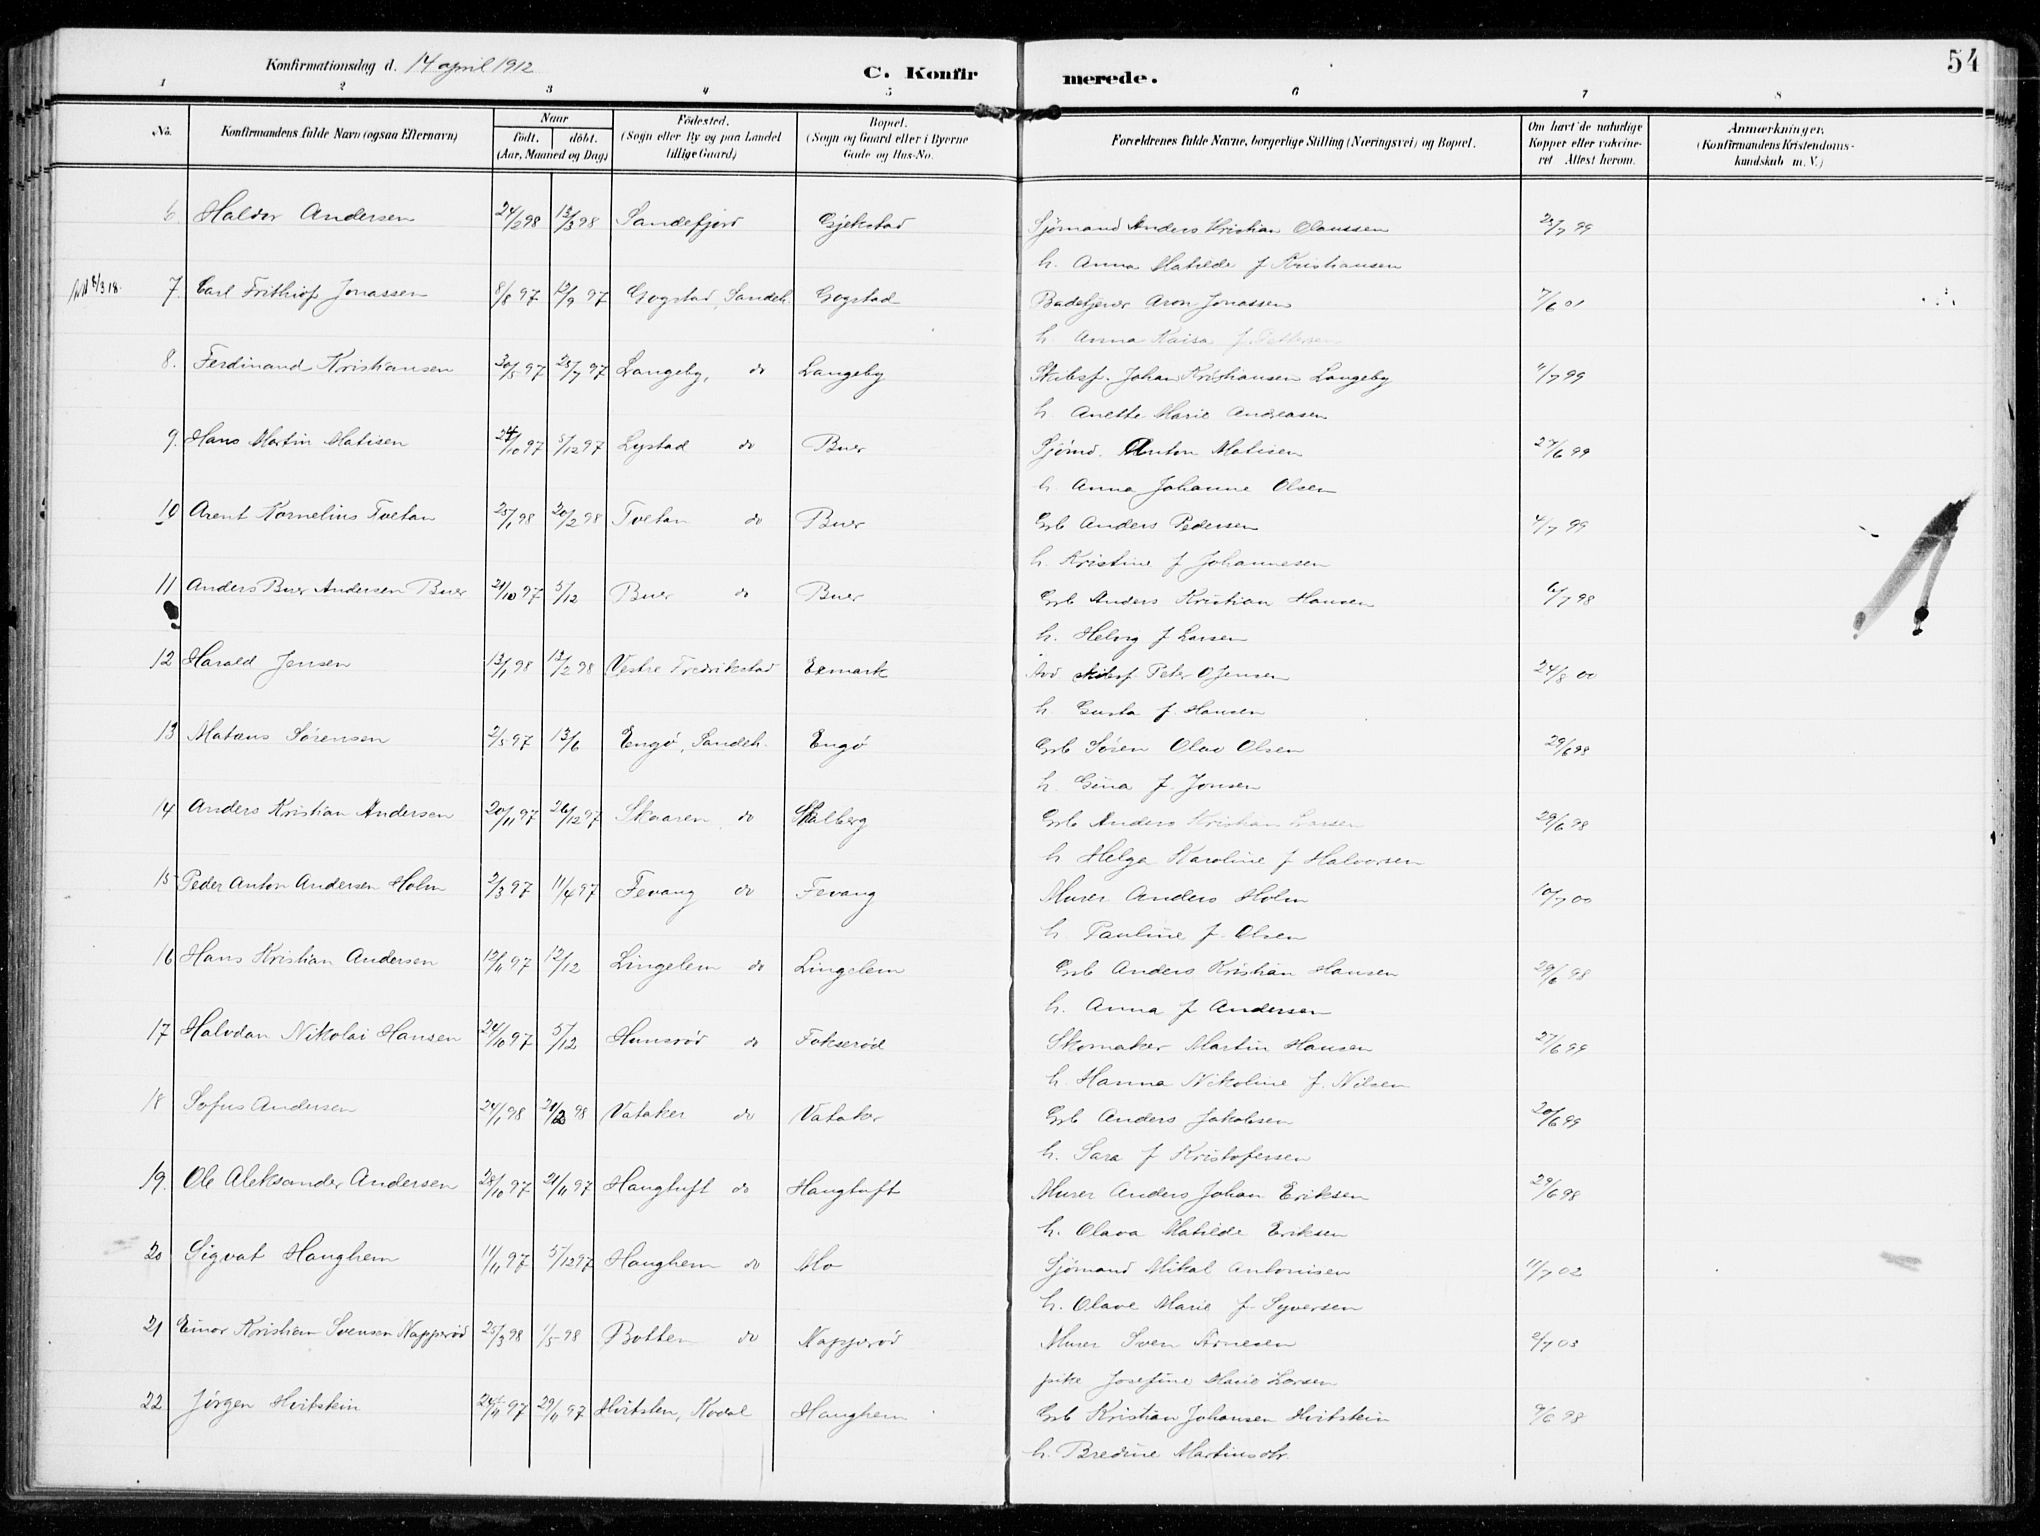 54
Konfirmationsdag d. 14 april 1912
C. Konfirmerede.
1 2 3 4 5 6 7 8
No. Konfirmandens fulde Navn (ogsaa Efternavn) Naar født. døbt. (Aar, Maaned og Dag) Fødested. (Sogn eller By og paa Landet tillige Gaard) Bopæl. (Sogn og Gaard eller i Byerne Gade og Hus-No. Forældrenes fulde Navne, borgerlige Stilling (Næringsvei) og Bopæl. Om havt de naturlige Kopper eller vakcineret. Attest herom. Anmærkninger. (Konfirmandens Kristendomskundskab m. V.)
6 Haldor Andersen 24/2 98 13/3 98 Sandefjord Gjekstad Sjømand Anders Kristian Olaussen 25/7 99
h. Anna Matilde f Kristiansen
6/3 18. 7. Carl Frithiof Jonassen 8/8 97 12/9 97 Gogstad, Sandeh. Gogstad Badetjener Aron Jonassen 7/6 01
h. Anna Kaisa f Pettersen
8. Ferdinand Kristiansen 30/5 97 25/7 97 Langeby, do Langeby Skibsf. Johan Kristiansen Langeby 11/7 99
h. Anette Marie Andreasen
9. Hans Martin Matisen 24/10 97 5/12 97 Lystad do Buer Sjømd. Anton Matisen 27/6 99
h. Anna Johanne Olsen
10 Arent Kornelius Tvetan 25/1 98 20/2 98 Tvetan do Buer Grb Anders Pedersen 4/7 99
h. Kristine f Johannesen
11 Anders Buer Andersen Buer 21/10 97 5/12 Buer do Buer Grb Anders Kristian Hansen 6/7 98
h. Helvig f Larsen
12 Harald Jensen 13/1 98 13/2 98 Vestre Fredrikstad Exmark Avd skibsf Peter O Jensen 24/8 00
h. Gusta f. Hansen
13 Matæus Sørensen 2/5 97 13/6 Engø, Sandeh. Engø Grb Søren Olav Olsen 29/6 98
h. Gina f. Jonsen
14 Anders Kristian Andersen 20/11 97 26/12 97 Skaaren do Skalberg Grb Anders Kristian Larsen 29/6 98
h Helga Karoline f Halvorsen
15 Peder Anton Andersen Holm 2/3 97 11/4 97 Fevang do Fevang Murer Anders Holm 10/7 00
h. Pauline f. Olsen
16 Hans Kristian Andersen 12/11 97 12/12 Lingelem do Lingelem Grb Anders Kristian Hansen 29/6 98
h. Anna f Andersen
17 Halvdan Nikolai Hansen 24/10 97 5/12 Hunsrød do Fokserød Skomaker Martin Hansen 27/6 99
h. Hanna Nikoline f. Nilsen
18 Sofus Andersen 24/1 98 21/2 98 Vataker do Vataker Grb Anders Jakobsen 20/6 99
h. Sara f Kristofersen
19. Ole Aleksander Andersen 28/10 97 21/11 97 Haugtuft do Haugtuft Murer Anders Johan Eriksen 29/6 98
h. Olava Matilde Eriksen
20 Sigvat Haughem 11/11 97 5/12 97 Haughem do Mo Sjømand Mikal Antonisen 11/7 02
h. Olave Marie f. Syversen
21 Einar Kristian Svensen Napperød 25/3 98 1/5 98 Botten do Napperød Murer Sven Arnesen 2/7 03
pike Josefine Marie Larsen
22 Jørgen Hvitstein 24/11 97 29/11 97 Hvitsten, Kodal Haughem Grb Kristian Johansen Hvitstein 9/6 98
h. Bredine Martinsdtr.